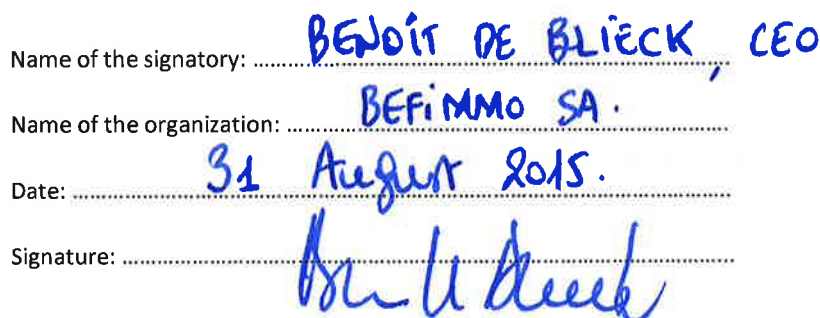 Name of the signatory: BENOÎT DE BLIECK, CEO
Name of the organization: BEFIMMO SA.
Date: 31 August 2015.
Signature: